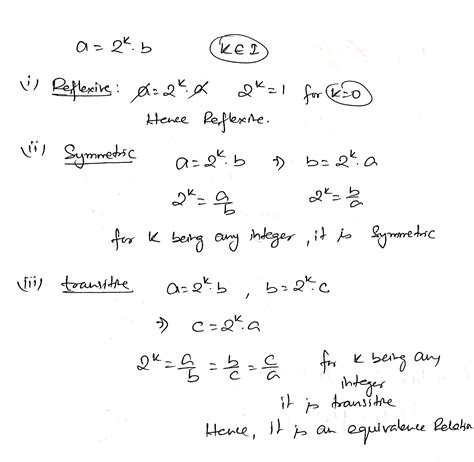 a = 2^k . b   k ∈ I
(i) Reflexive : a = 2^k . a   2^k = 1 for k=0
Hence Reflexive.
(ii) Symmetric   a = 2^k . b ⇒ b = 2^k . a
2^k = a/b   2^k = b/a
for k being any integer, it is Symmetric
(iii) transitive   a = 2^k . b , b = 2^k . c
⇒ c = 2^k . a
2^k = a/b = b/c = c/a   for k being any
integer
it is transitive
Hence, It is an equivalence Relation